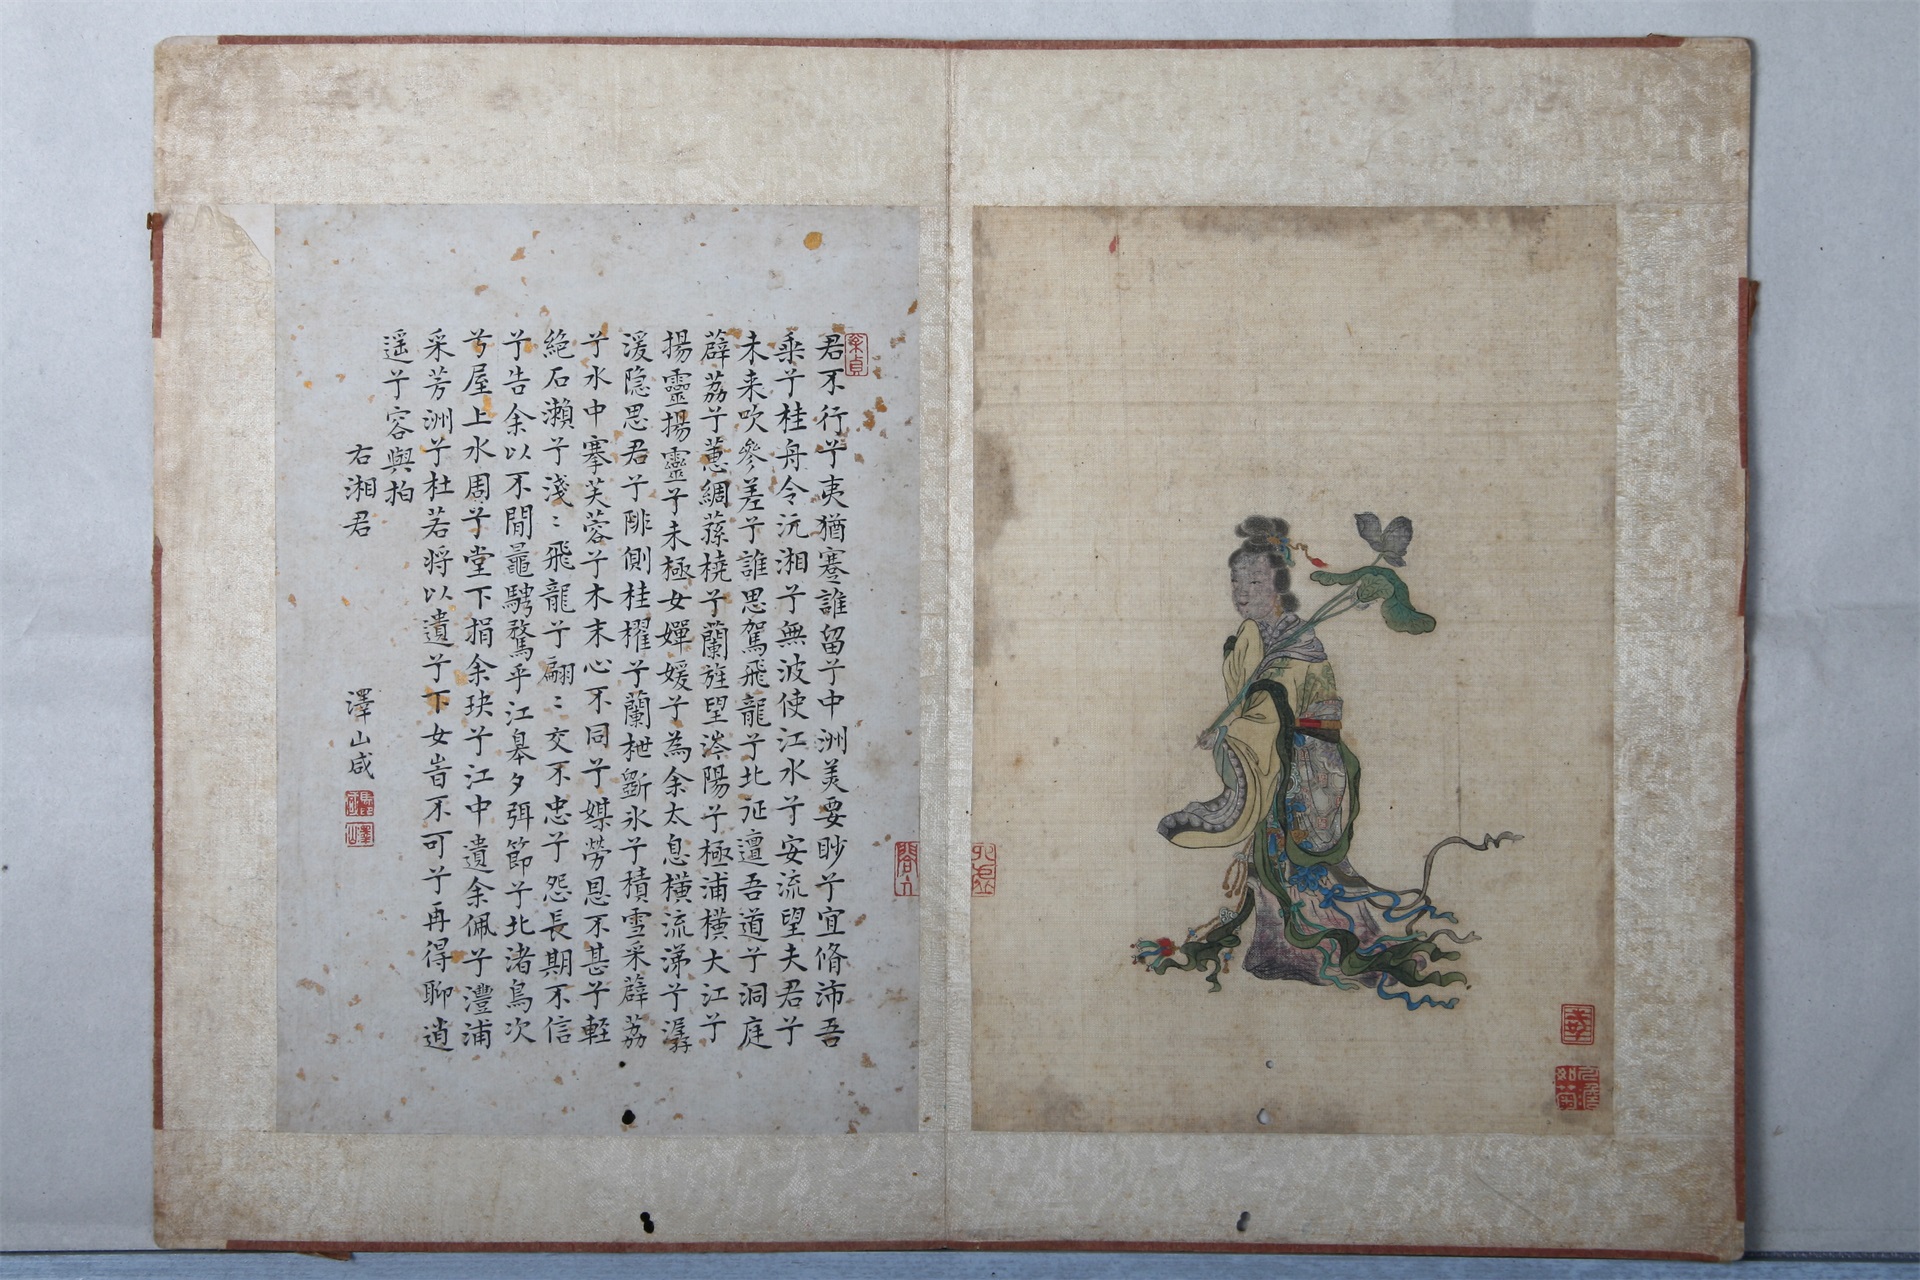 君不行兮夷猶蹇誰留兮中洲美要眇兮宜脩沛吾
乘兮桂舟令沅湘兮無波使江水兮安流望夫君兮
未来吹參差兮誰思駕飛龍兮北征邅吾道兮洞庭
薜荔兮蕙綢蓀橈兮蘭旌望涔陽兮極浦橫大江兮
揚靈揚靈兮未極女嬋媛兮為余太息橫流涕兮潺
湲隐思君兮陫側桂櫂兮蘭枻斲冰兮積雪采薜荔
兮水中搴芙蓉兮木末心不同兮媒勞恩不甚兮輕
絕石瀨兮淺〻飛龍兮翩〻交不忠兮怨長期不信
兮告余以不閒鼂騁騖乎江皋夕弭節兮北渚鳥次
兮屋上水周兮堂下捐余玦兮江中遺余佩兮澧浦
采芳洲兮杜若将以遺兮下女旹不可兮再得聊逍
遥兮容與拍
右湘君
澤山咸